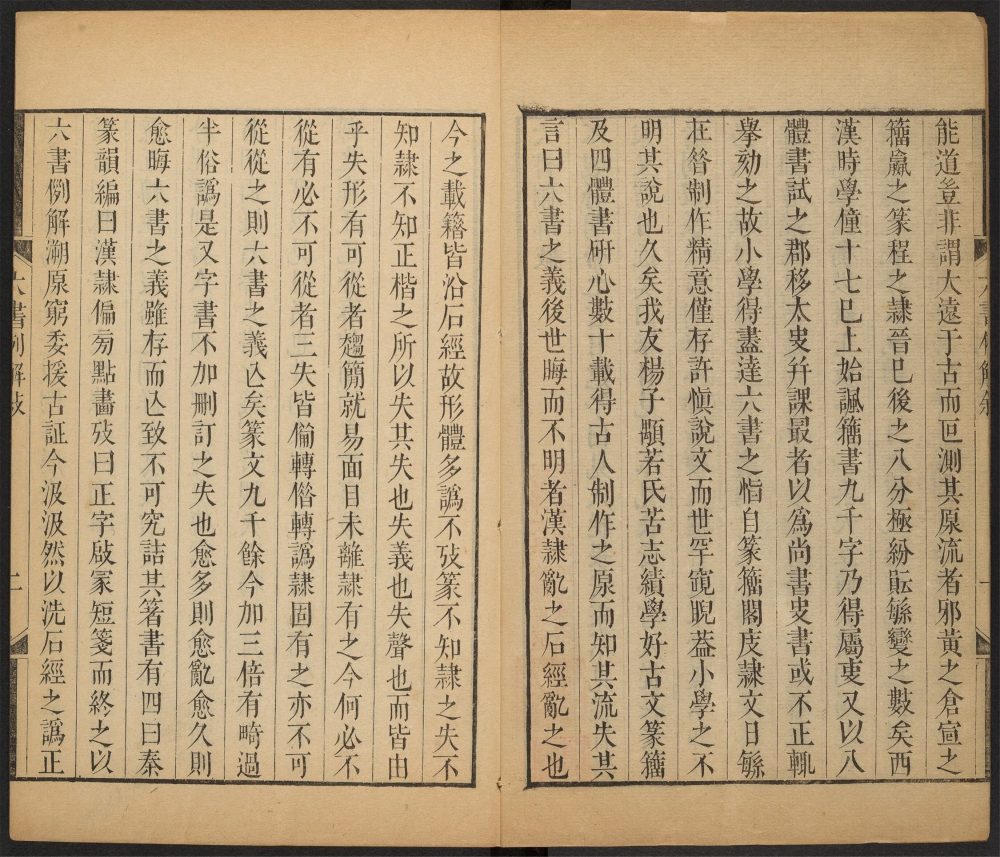 能道豈非謂大遠于古而叵測其原流者邪黃之倉宣之
籀嬴之篆程之隸晉巳後之八分極紛眃繇變之數矣西
漢時學僮十七巳上始諷籀書九千字乃得屬吏又以八
體書試之郡移太史幷課最者以爲尚書史書或不正輒
擧劾之故小學得盡達六書之恉自篆籀閣庋隸文日繇
在昝制作精意僅存許愼說文而世罕窺睨葢小學之不
明其說也久矣我友楊子顒若氏苦志績學好古文篆籀
及四體書硏心數十載得古人制作之原而知其流失其
言曰六書之義後世晦而不明者漢隸亂之石經亂之也
今之載籍皆沿石經故形體多譌不攷篆不知隸之失不
知隸不知正楷之所以失其失也失義也失聲也而皆由
乎失形有可從者趨簡就易面目未離隸有之今何必不
從有必不可從者三失皆偹轉僭轉譌隸固有之亦不可
從從之則六書之義亾矣篆文九千餘今加三倍有畸過
半俗譌是又字書不加刪訂之失也愈多則愈亂愈久則
愈晦六書之義雖存而亾致不可究詰其箸書有四曰秦
篆韻編曰漢隸偏旁點畫攷曰正字啟冡短箋而終之以
六書例解溯原窮委援古証今汲汲然以洗石經之譌正
六書例解敍
二